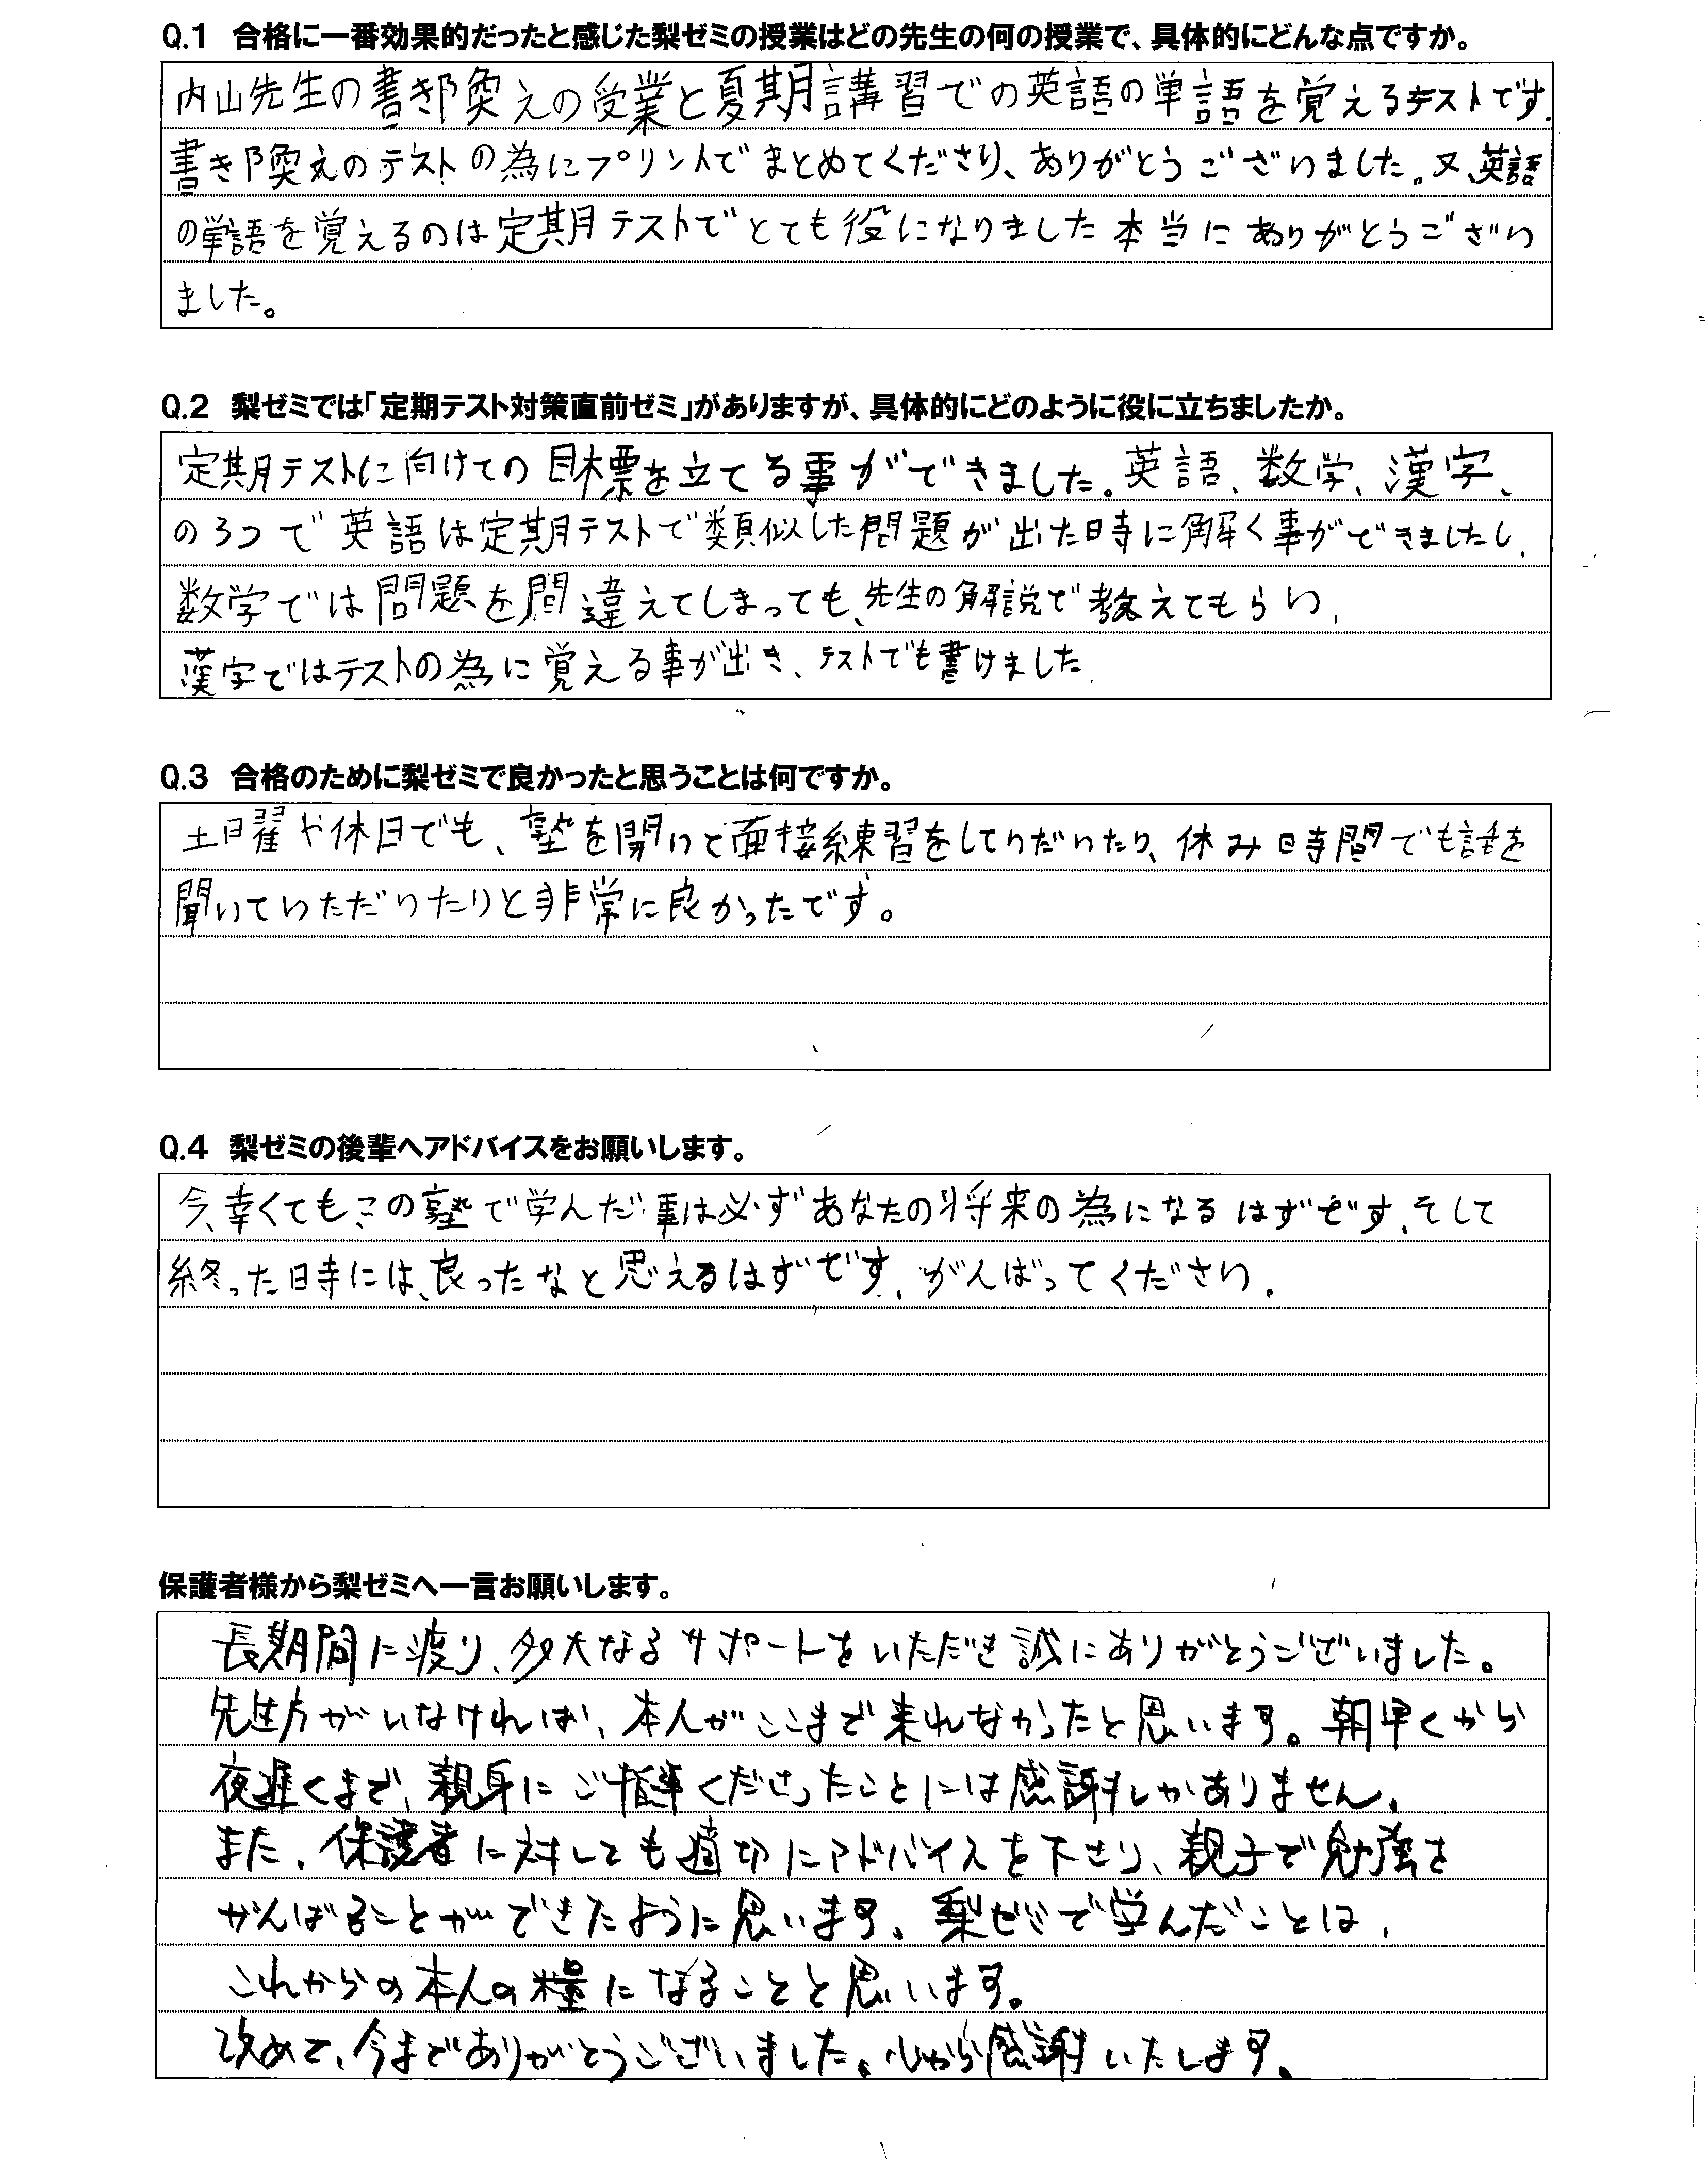 Q.1 合格に一番効果的だったと感じた梨ゼミの授業はどの先生の何の授業で、具体的にどんな点ですか。
内山先生の書き換えの授業と夏期講習での英語の単語を覚えるテストです.
書き換えのテストの為にプリントでまとめてくださり、ありがとうございました。又、英語
の単語を覚えるのは定期テストでとても役になりました本当にありがとうござい
ました。
Q.2 梨ゼミでは「定期テスト対策直前ゼミ」がありますが、具体的にどのように役に立ちましたか。
定期テストに向けての目標を立てる事ができました。英語、数学、漢字、
の3つで英語は定期テストで類似した問題が出た時に解く事ができましたし、
数学では問題を間違えてしまっても、先生の解説で教えてもらい、
漢字ではテストの為に覚える事が出き、テストでも書けました.
Q.3 合格のために梨ゼミで良かったと思うことは何ですか。
土曜や休日でも、塾を開いて面接練習をしていだいたり、休み時間でも話を
聞いていただいたりと非常に良かったです。
Q.4 梨ゼミの後輩へアドバイスをお願いします。
今、幸くてもこの塾で学んだ事は必ずあなたの将来の為になるはずです、そして
終った時には、良ったなと思えるはずです、がんばってください.
保護者様から梨ゼミへ一言お願いします。
長期間に渡り、多大なるサポートをいただき誠にありがとうございました。
先生方がいなければ、本人がここまで来れなかったと思います。朝早くから
夜遅くまで、親身にご指導くださったことには感謝しかありません。
また、保護者に対しても適切にアドバイスを下さり、親子で勉強を
がんばることができたように思います。梨ゼミで学んだことは、
これからの本人の糧になることと思います。
改めて、今までありがとうございました。心から感謝いたします。